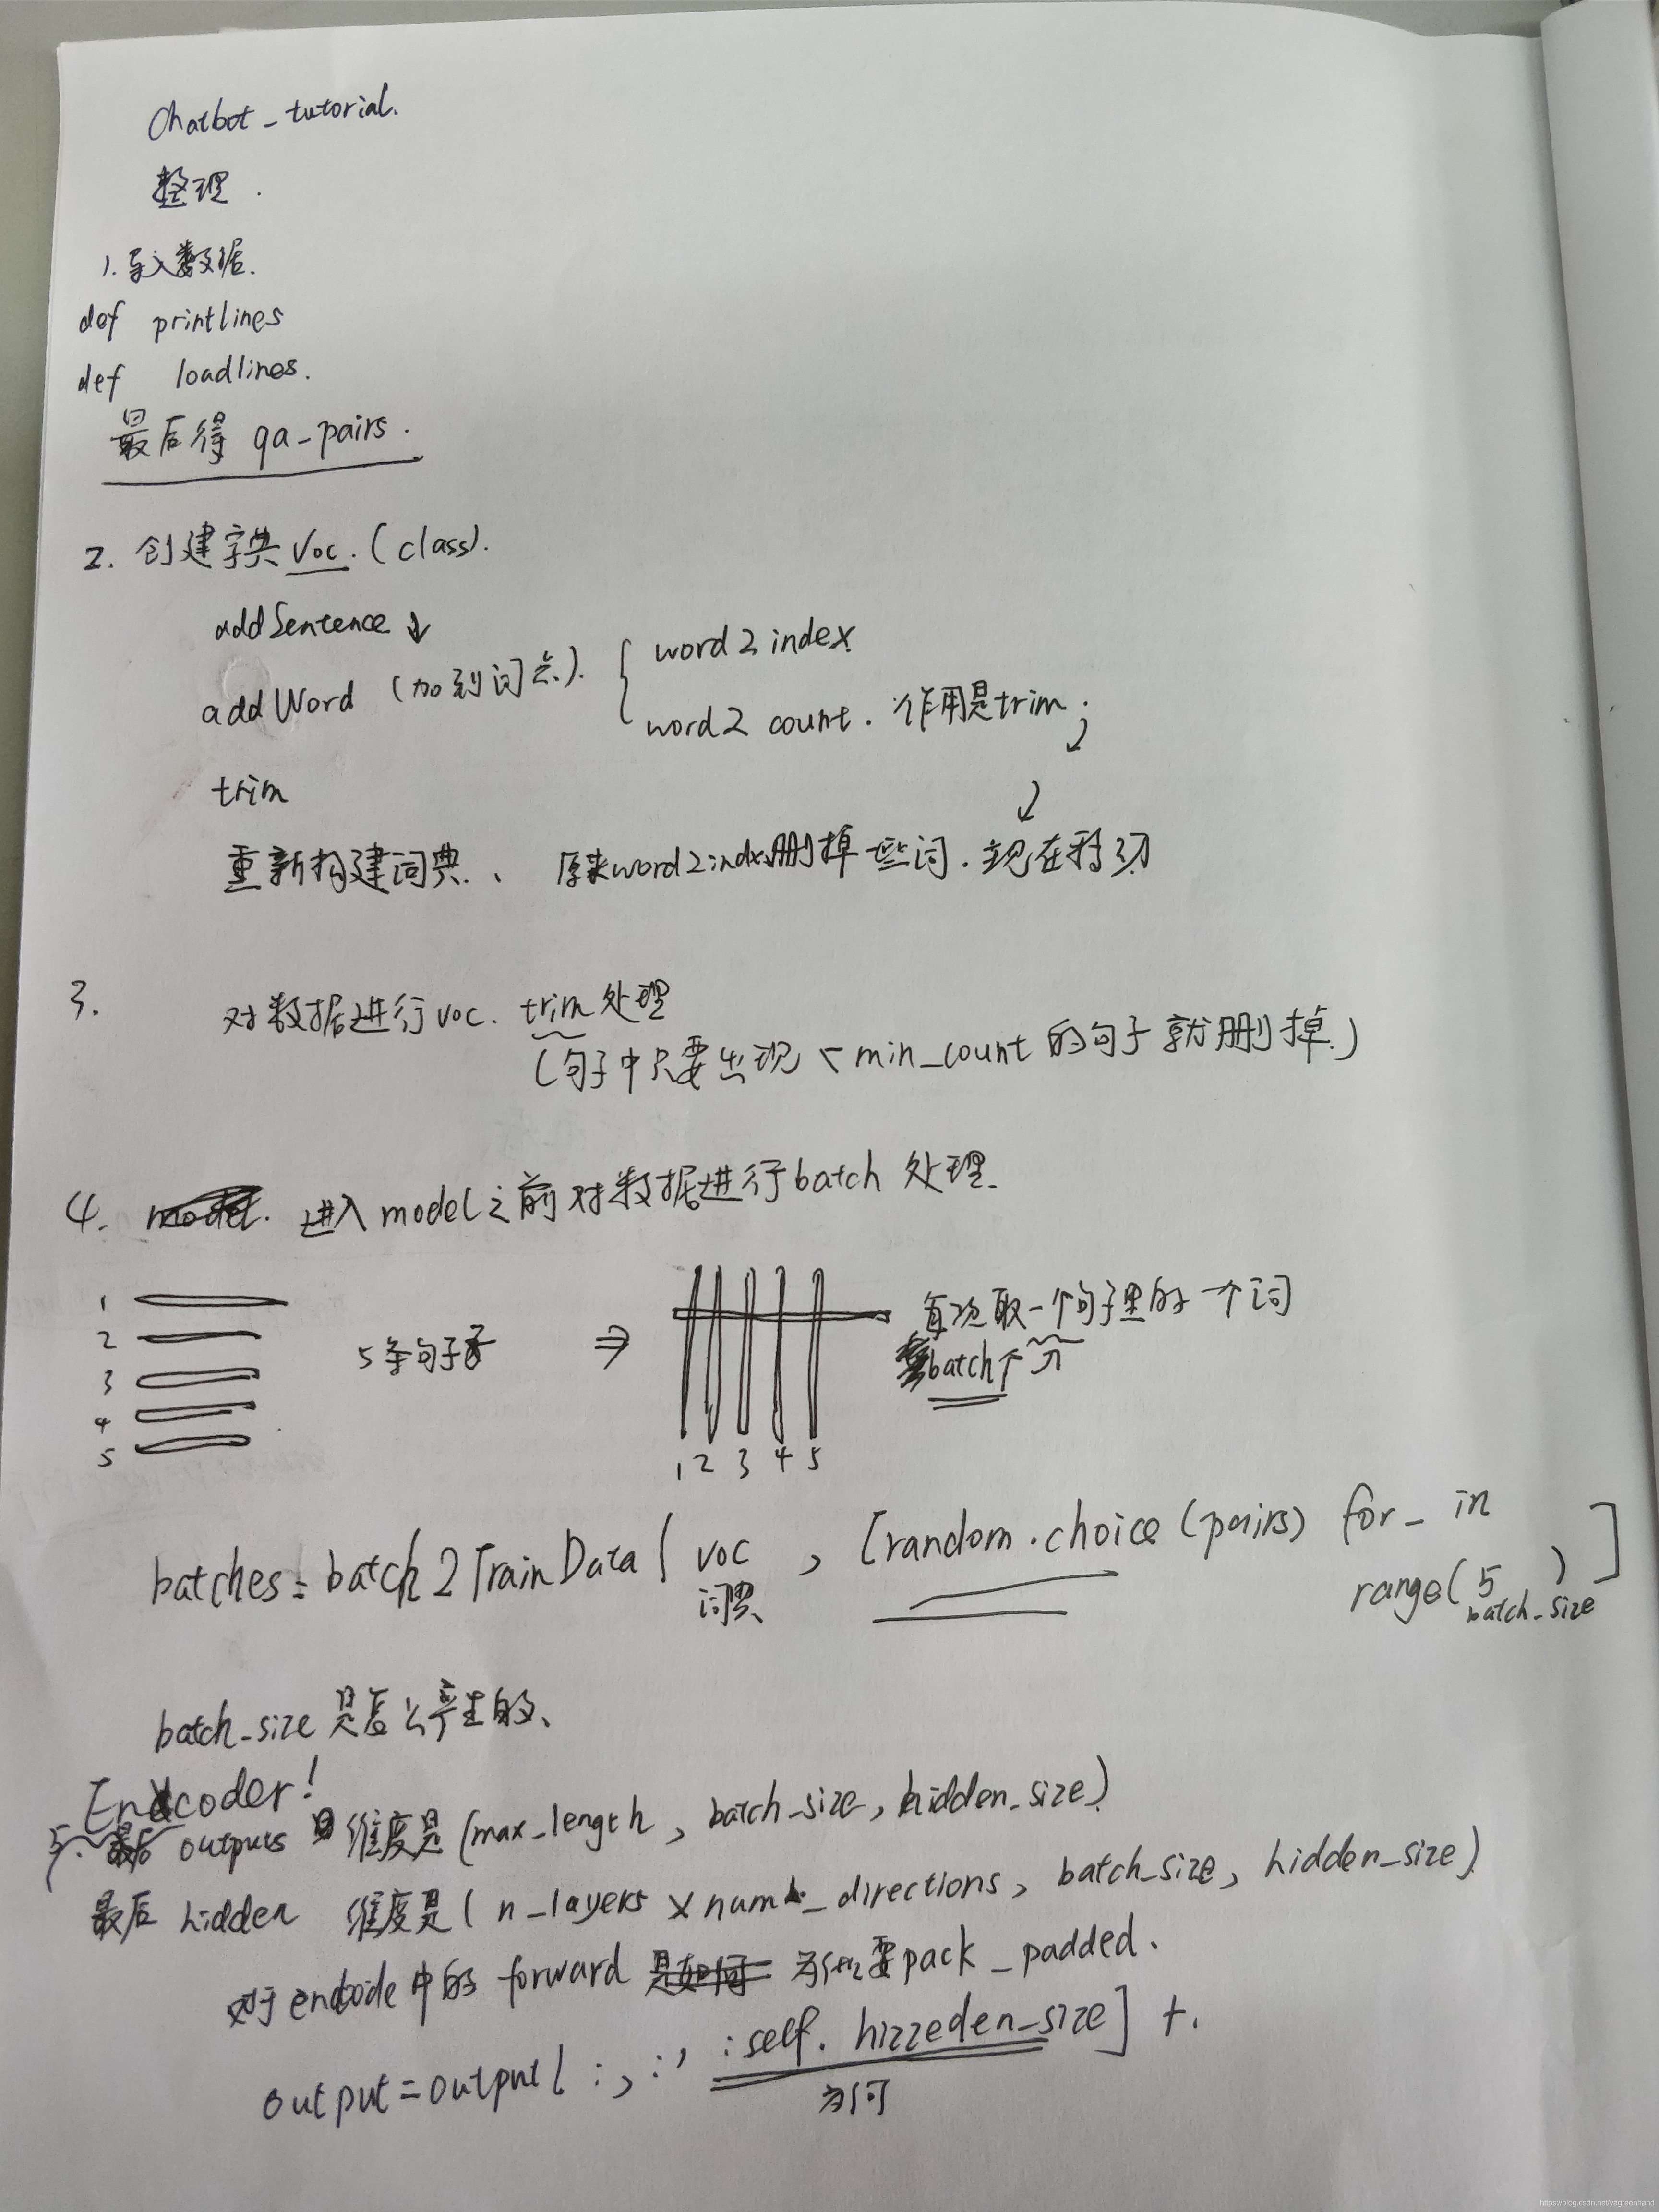 Chatbot_tutorial.
整理.
1. 导入数据.
def printlines
def loadlines.
最后得 qa_pairs.
2. 创建字典 Voc. (class).
addSentence ↓
addWord (加到词典).
word2index
word2count. 作用是trim.
trim
重新构建词典、 原来word2index删掉一些词.
3. 对数据进行voc. trim处理
(句子中只要出现 < min_count 的句子就删掉.)
4. 进入model之前对数据进行batch处理.
1
2
3
4
5
5条句子
⇒
1 2 3 4 5
每次取一个句子里的一个词
batch个
batches = batch2TrainData( voc , [random.choice(pairs) for_ in
词典
range( 5 ) ]
batch_size
batch_size 是怎么产生的、
Encoder!
5. 最后 outputs 维度是(max_length, batch_size, hidden_size)
最后 hidden 维度是( n_layers × num_directions, batch_size, hidden_size)
对于encode中的 forward 为什么要pack_padded.
output=output[ :, :, :self. hizzeden_size] +.
为何
https://blog.csdn.net/yagreenhand